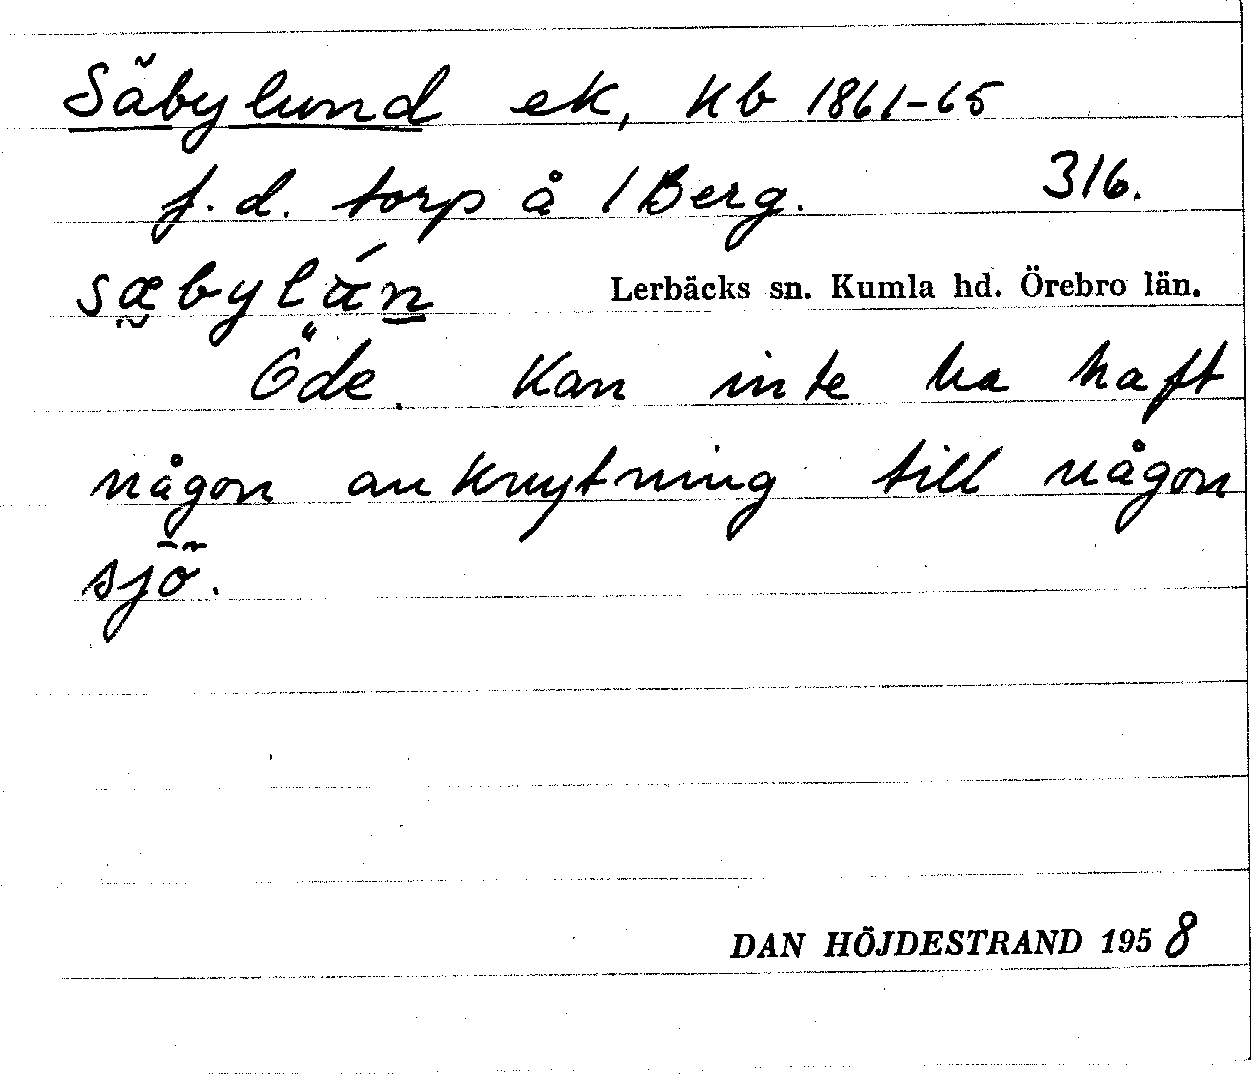 Säbylund ek, kb 1861-65
f.d. torp å 1 Berg. 316.
sæbylán Lerbäcks sn. Kumla hd. Örebro län.
Öde. Kan inte ha haft
någon anknytning till någon
sjö.
DAN HÖJDESTRAND 1958